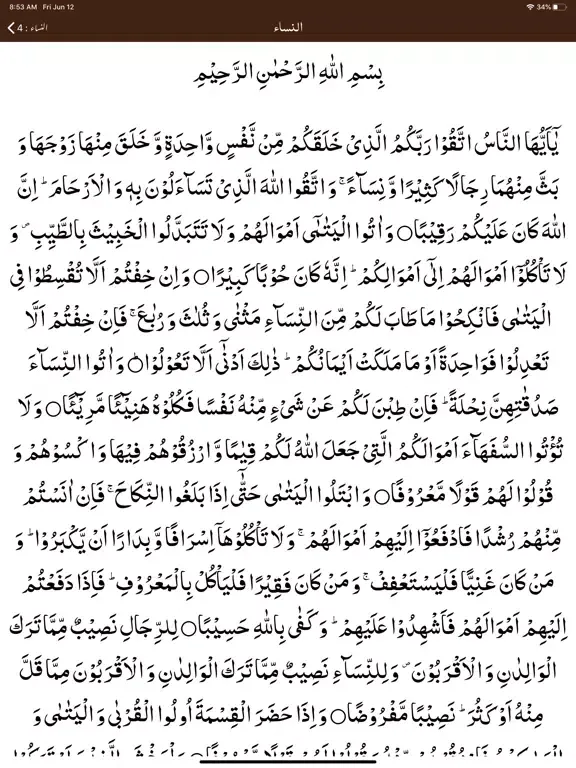 8:53 AM Fri Jun 12 34%
النساء : 4 النساء
بِسْمِ اللّٰهِ الرَّحْمٰنِ الرَّحِيْمِ
يٰۤاَيُّهَا النَّاسُ اتَّقُوْا رَبَّكُمُ الَّذِىْ خَلَقَكُمْ مِّنْ نَّفْسٍ وَّاحِدَةٍ وَّ خَلَقَ مِنْهَا زَوْجَهَا وَ
بَثَّ مِنْهُمَا رِجَالًا كَثِيْرًا وَّ نِسَآءً ۚ وَ اتَّقُوا اللّٰهَ الَّذِىْ تَسَآءَلُوْنَ بِهٖ وَ الْاَرْحَامَ ؕ اِنَّ
اللّٰهَ كَانَ عَلَيْكُمْ رَقِيْبًا○ وَ اٰتُوا الْيَتٰمٰٓى اَمْوَالَهُمْ وَ لَا تَتَبَدَّلُوا الْخَبِيْثَ بِالطَّيِّبِ ۪ وَ
لَا تَاْكُلُوْۤا اَمْوَالَهُمْ اِلٰٓى اَمْوَالِكُمْ ؕ اِنَّهٗ كَانَ حُوْبًا كَبِيْرًا○ وَ اِنْ خِفْتُمْ اَلَّا تُقْسِطُوْا فِى
الْيَتٰمٰى فَانْكِحُوْا مَا طَابَ لَكُمْ مِّنَ النِّسَآءِ مَثْنٰى وَ ثُلٰثَ وَ رُبٰعَ ۚ فَاِنْ خِفْتُمْ اَلَّا
تَعْدِلُوْا فَوَاحِدَةً اَوْ مَا مَلَكَتْ اَيْمَانُكُمْ ؕ ذٰلِكَ اَدْنٰٓى اَلَّا تَعُوْلُوْا○ وَ اٰتُوا النِّسَآءَ
صَدُقٰتِهِنَّ نِحْلَةً ؕ فَاِنْ طِبْنَ لَكُمْ عَنْ شَىْءٍ مِّنْهُ نَفْسًا فَكُلُوْهُ هَنِيْٓئًا مَّرِيْٓئًا○ وَ لَا
تُؤْتُوا السُّفَهَآءَ اَمْوَالَكُمُ الَّتِىْ جَعَلَ اللّٰهُ لَكُمْ قِيٰمًا وَّ ارْزُقُوْهُمْ فِيْهَا وَ اكْسُوْهُمْ وَ
قُوْلُوْا لَهُمْ قَوْلًا مَّعْرُوْفًا○ وَ ابْتَلُوا الْيَتٰمٰى حَتّٰٓى اِذَا بَلَغُوا النِّكَاحَ ۚ فَاِنْ اٰنَسْتُمْ
مِّنْهُمْ رُشْدًا فَادْفَعُوْۤا اِلَيْهِمْ اَمْوَالَهُمْ ۚ وَ لَا تَاْكُلُوْهَاۤ اِسْرَافًا وَّ بِدَارًا اَنْ يَّكْبَرُوْا ؕ وَ
مَنْ كَانَ غَنِيًّا فَلْيَسْتَعْفِفْ ۚ وَ مَنْ كَانَ فَقِيْرًا فَلْيَاْكُلْ بِالْمَعْرُوْفِ ؕ فَاِذَا دَفَعْتُمْ
اِلَيْهِمْ اَمْوَالَهُمْ فَاَشْهِدُوْا عَلَيْهِمْ ؕ وَ كَفٰى بِاللّٰهِ حَسِيْبًا○ لِلرِّجَالِ نَصِيْبٌ مِّمَّا تَرَكَ
الْوَالِدٰنِ وَ الْاَقْرَبُوْنَ ۪ وَ لِلنِّسَآءِ نَصِيْبٌ مِّمَّا تَرَكَ الْوَالِدٰنِ وَ الْاَقْرَبُوْنَ مِمَّا قَلَّ
مِنْهُ اَوْ كَثُرَ ؕ نَصِيْبًا مَّفْرُوْضًا○ وَ اِذَا حَضَرَ الْقِسْمَةَ اُولُوا الْقُرْبٰى وَ الْيَتٰمٰى وَ